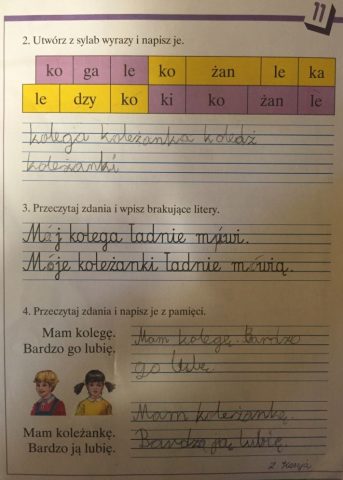 11
2. Utwórz z sylab wyrazy i napisz je.
ko ga le ko żan le ka
le dzy ko ki ko żan le
kolega koleżanka koledź
koleżanki
3. Przeczytaj zdania i wpisz brakujące litery.
Mój kolega ładnie mówi.
Moje koleżanki ładnie mówią.
4. Przeczytaj zdania i napisz je z pamięci.
Mam kolegę.
Bardzo go lubię.
Mam kolegę. Bardzo
go lubię
Mam koleżankę.
Bardzo ją lubię.
Mam koleżankę.
Bardzo ją lubię.